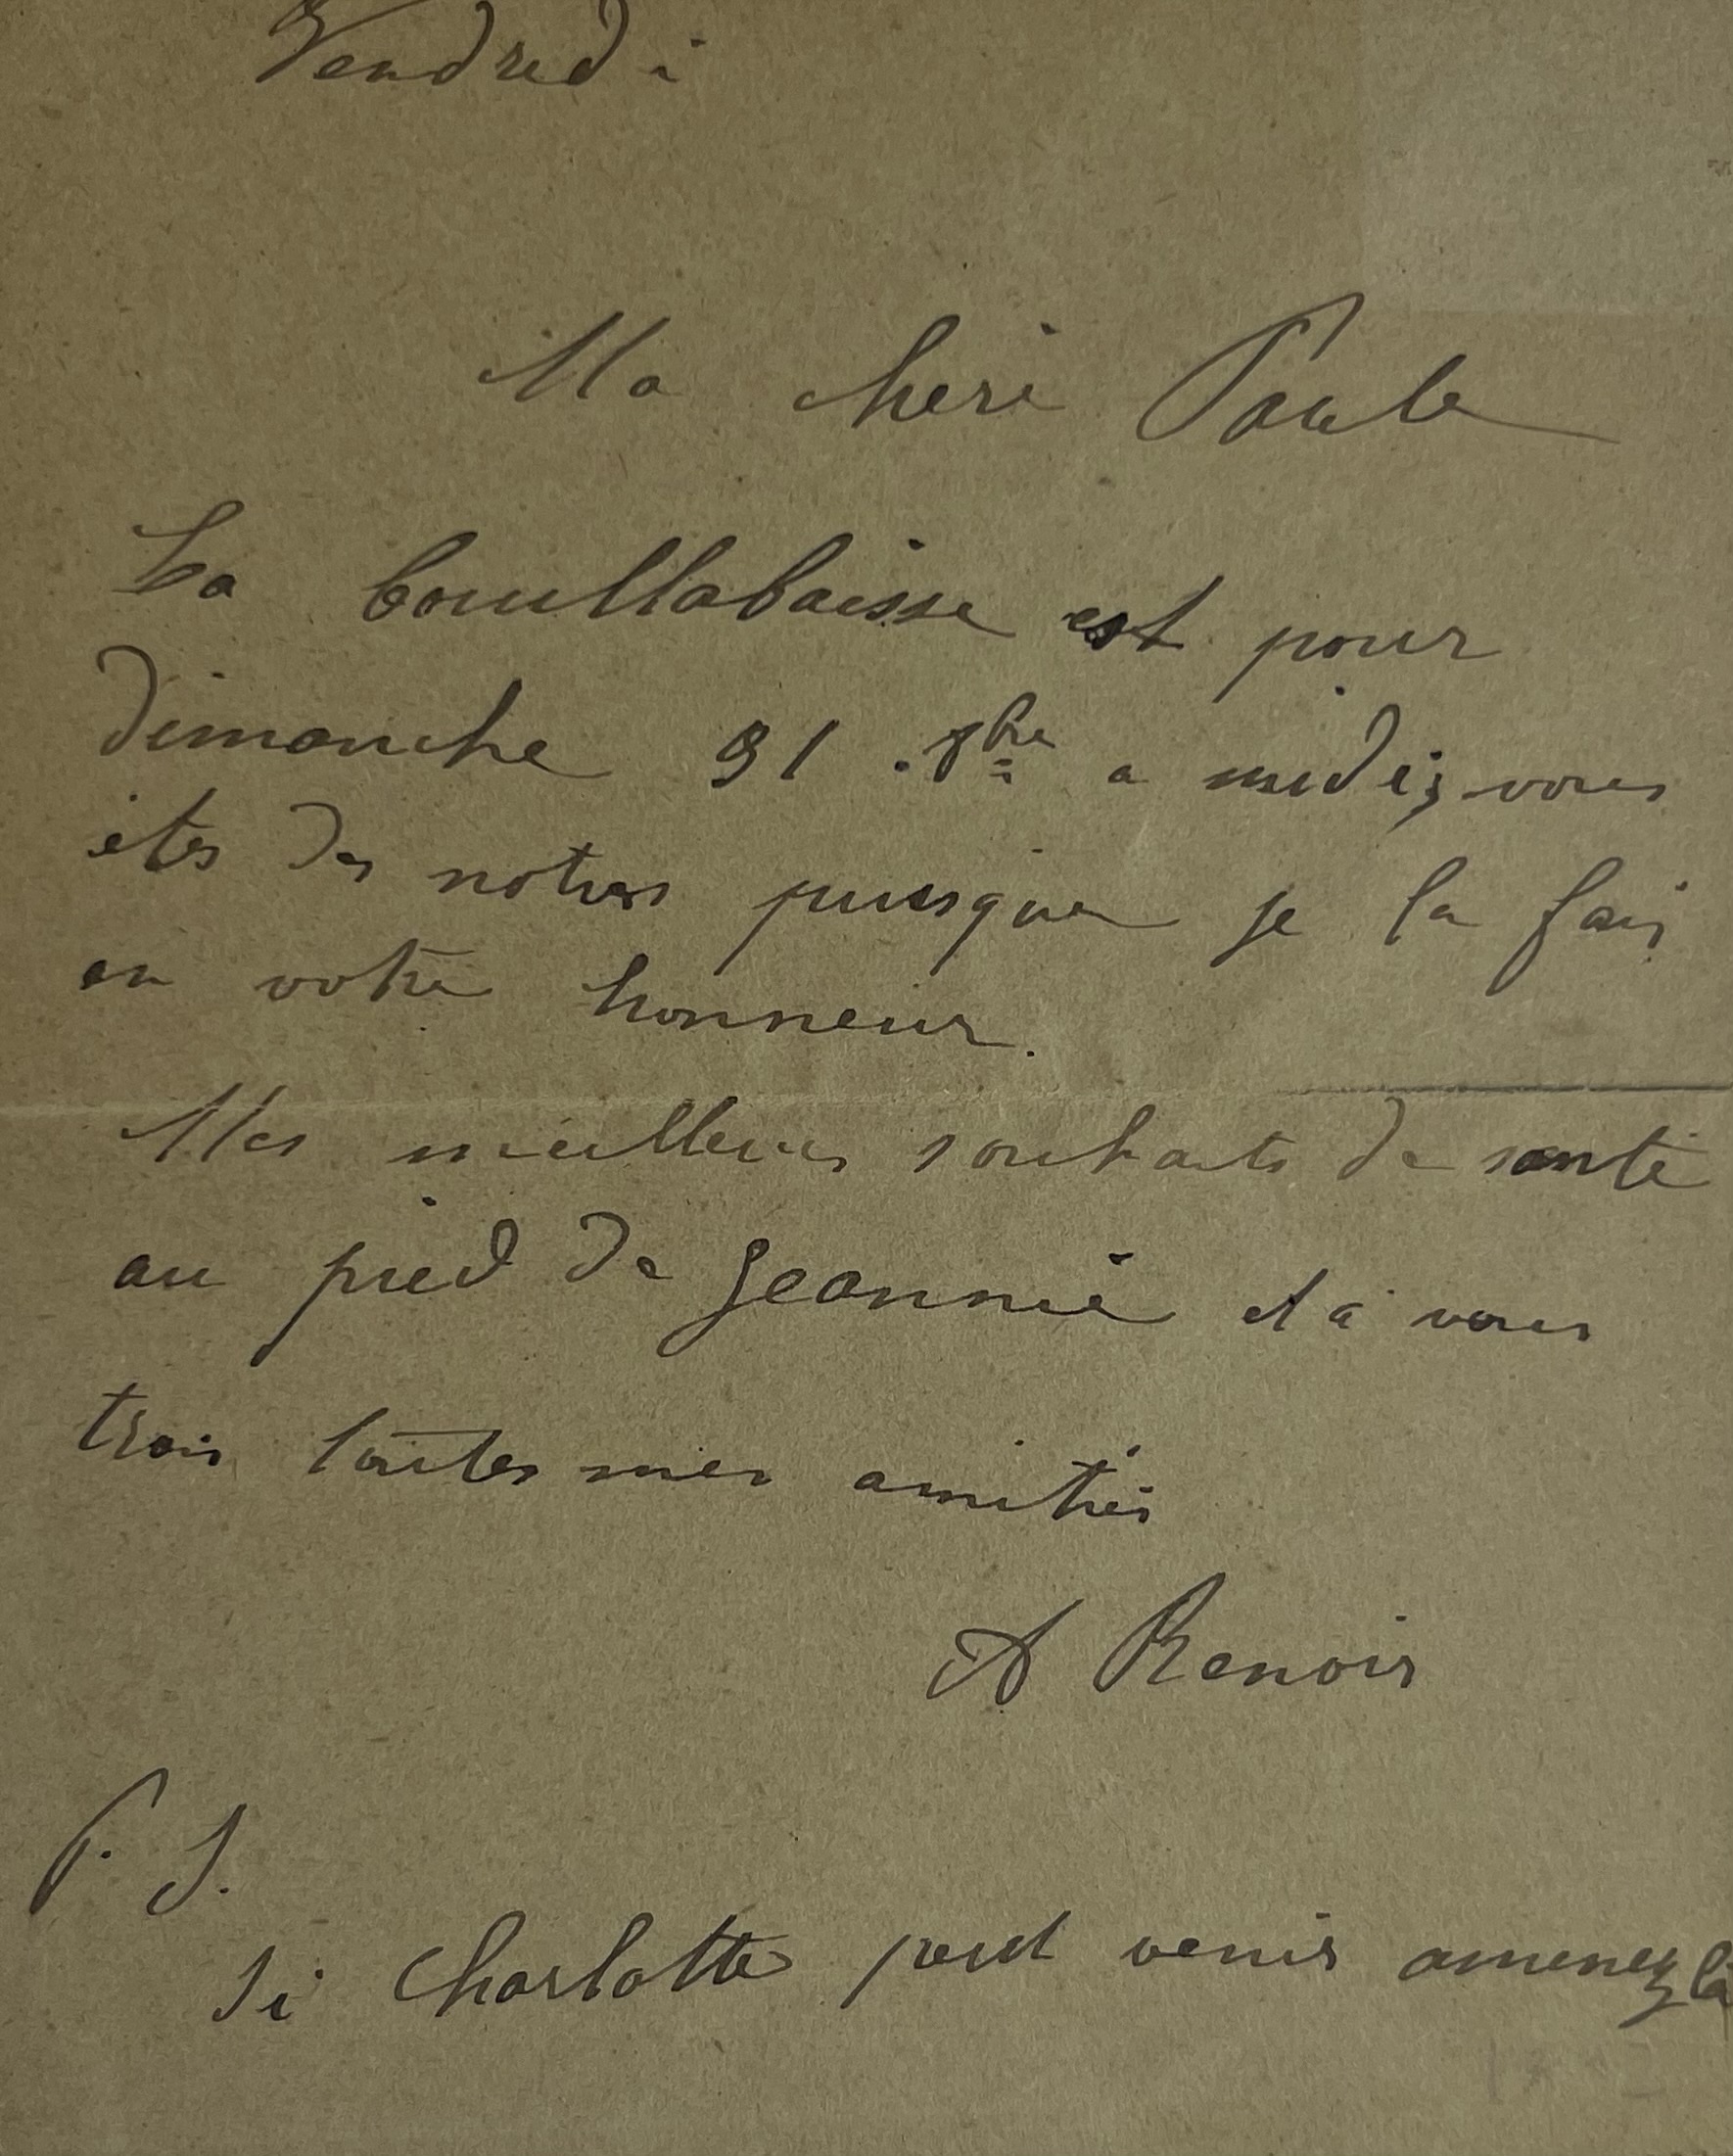 Vendredi
Ma cheré Paule
La bouullabaisse est pour
dimanche 31 .8bre a midi, vous
étes des notres puisque je la fais
en votre honneur.
Mes meilleurs souhaits de santé
au pied de Jeannie et à vous
trois toutes mes amitiés
A Renoir
P. S.
Si Charlotte peut venir amenez la